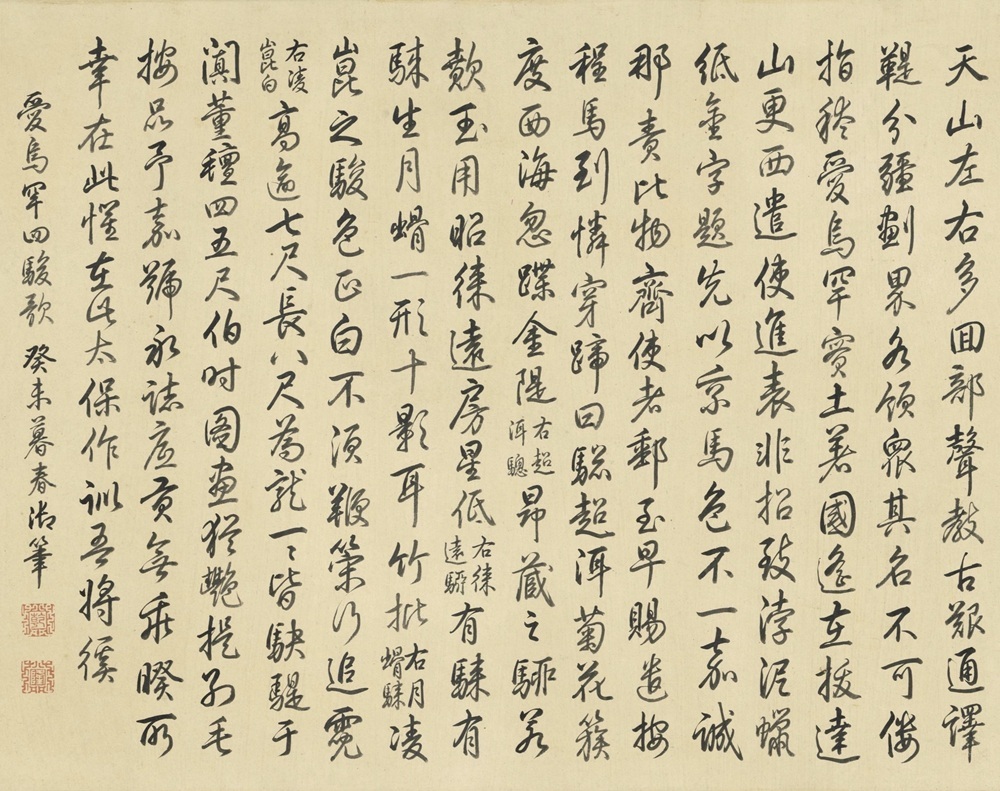 天山左右多囬部聲教古艱通譯
鞮分疆劃界各領眾其名不可僂
指稽愛烏罕實土著國遙在拔達
山更西遣使進表非招致浡泥蠟
紙金字題先以京馬色不一嘉誠
那責比物齊使者郵至早賜遣按
程馬到憐穿蹄曰驄超洱菊花簇
度西海忽蹀金隄右超洱驄昂藏之騮若
歕玉用昭徠遠房星低右徠遠騮有騋有
騋生月螖一形十影耳竹批右月螖騋凌
崑之駿色正白不須鞭策行追霓
右凌崑白高逾七尺長八尺為龍一一皆駃騠于
闐董種四五尺伯時圖畫猶艷提別毛
按品予嘉號永誌底貢無乖暌所
幸在此懼在此太保作訓吾將徯
愛烏罕四駿歌 癸未暮春御筆